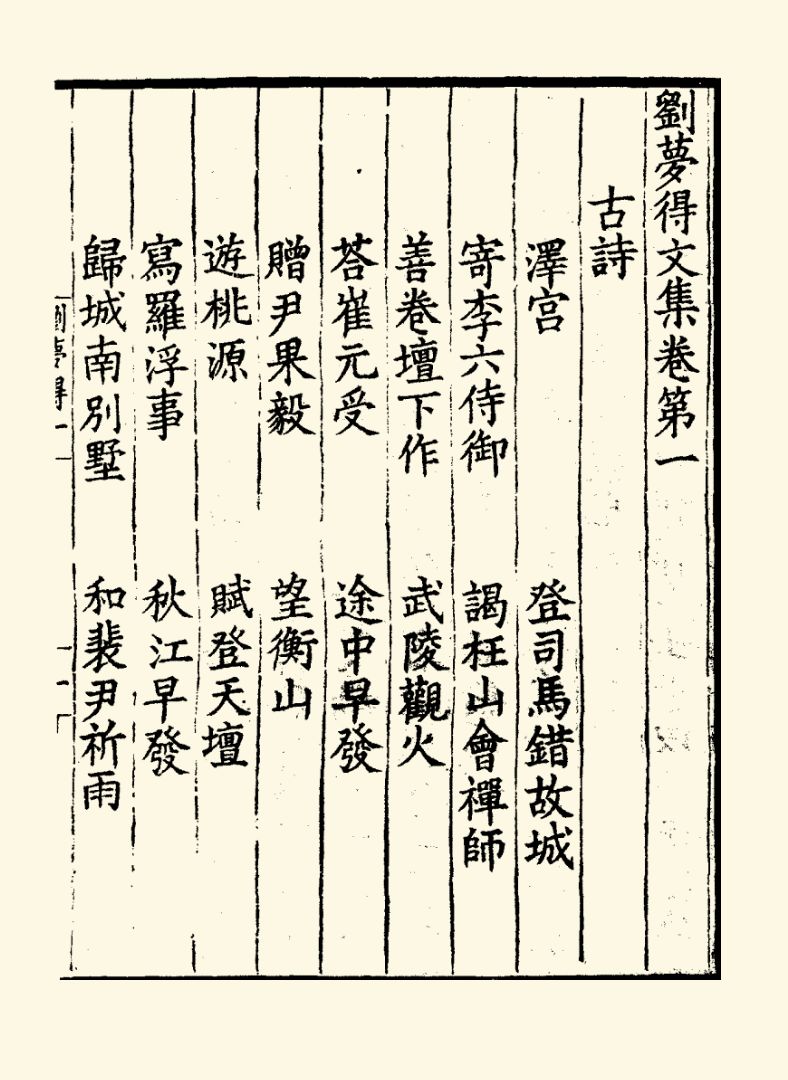 劉夢得文集卷第一
古詩
澤宮 登司馬錯故城
寄李六侍御 謁枉山會禪師
善卷壇下作 武陵觀火
荅崔元受 途中早發
贈尹果毅 望衡山
遊桃源 賦登天壇
寫羅浮事 秋江早發
歸城南別墅 和裴尹祈雨